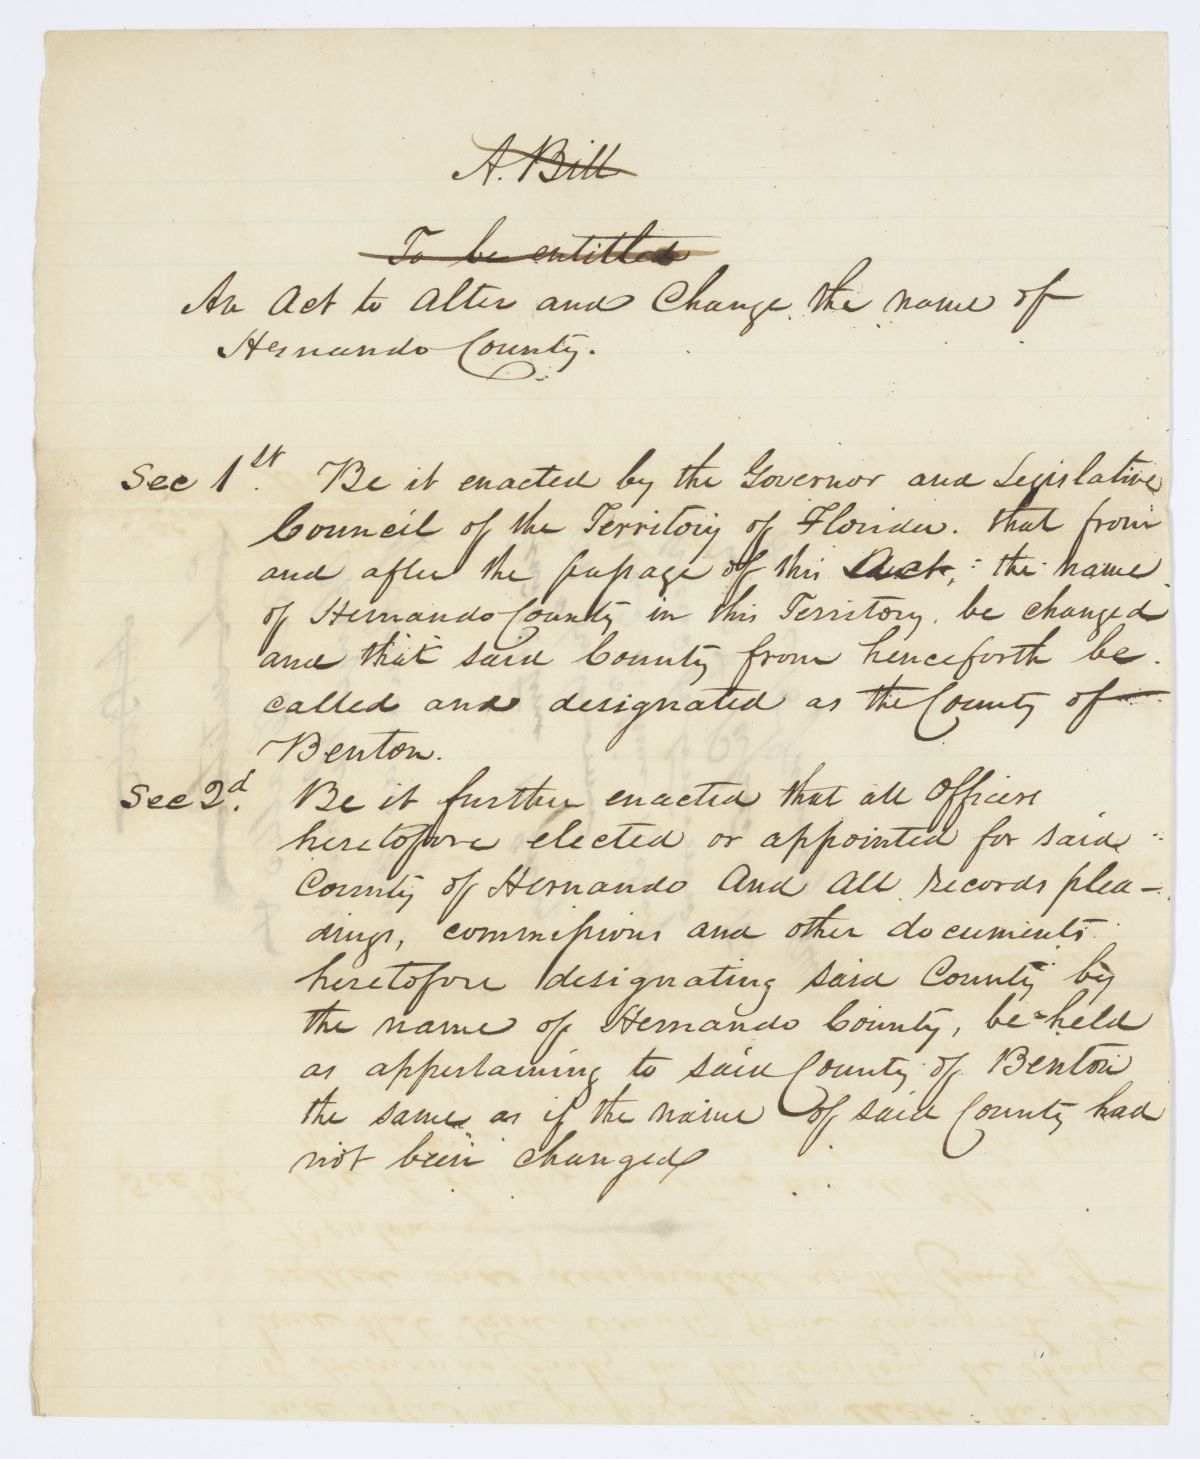 A. Bill
To be entitled
An Act to Alter and Change the name of
Hernando County.
Sec 1st. Be it enacted by the Governor and Legislative
Council of the Territory of Florida. that from
and after the passage of this Act, the name
of Hernando County in this Territory, be changed
and that said County from henceforth be
called and designated as the County of
Benton.
Sec 2d. Be it further enacted that all Officers
heretofore elected or appointed for said
County of Hernando And All records plea-
dings, commissions and other documents
heretofore designating said County by
the name of Hernando County, be held
as appertaining to said County of Benton
the same as if the name of said County had
not been changed